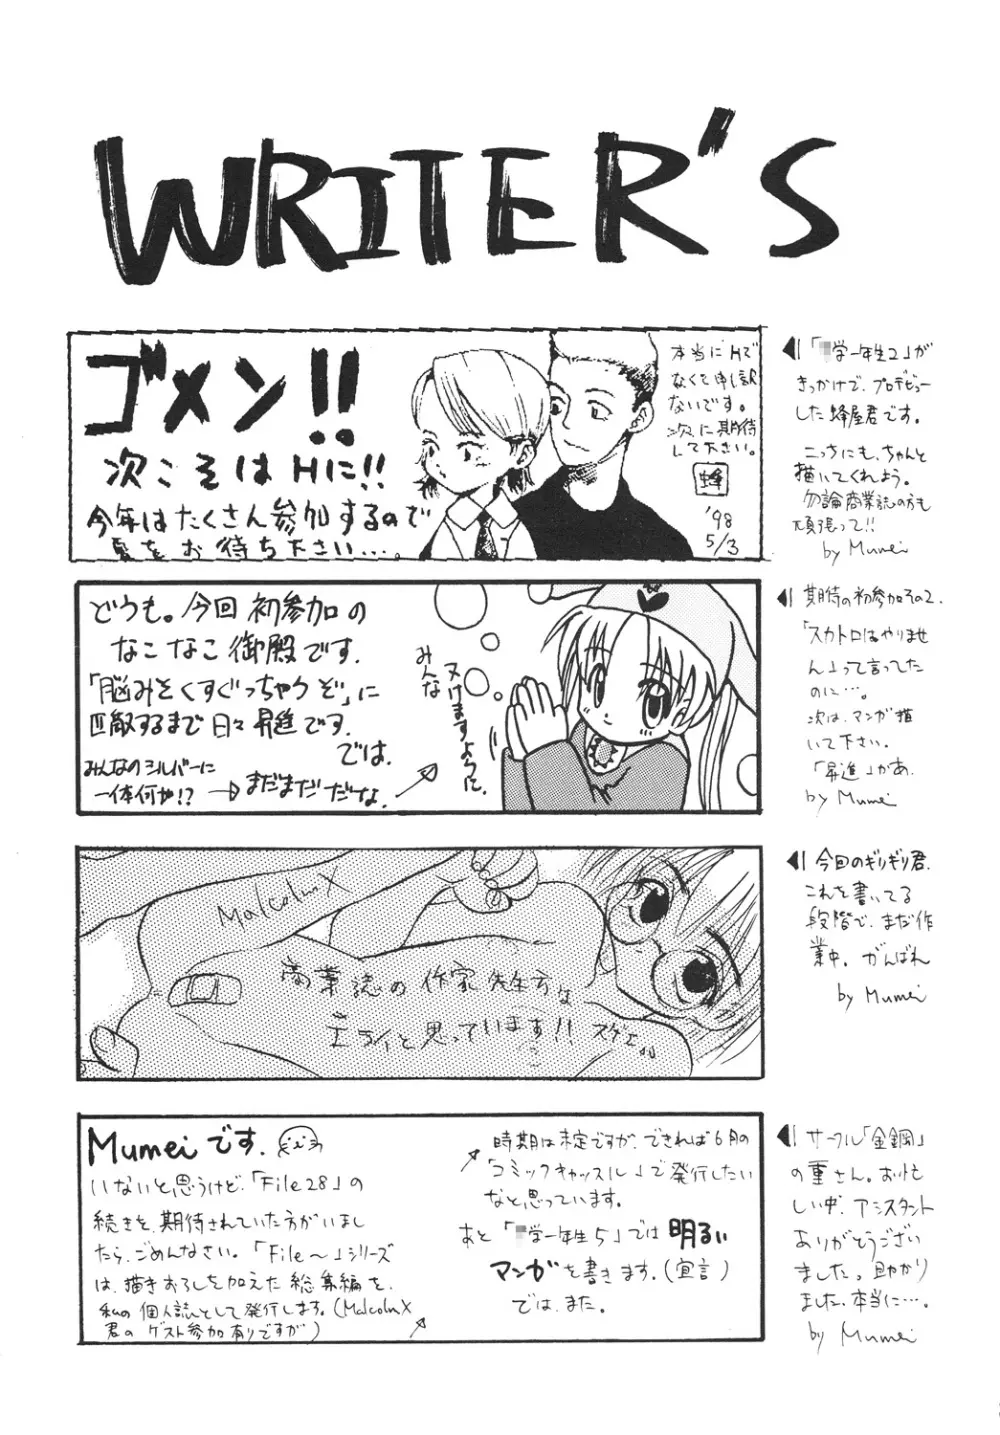 WRITER'S
ゴメン!!
次こそはHに!!
今年はたくさん参加するので
夏をお待ち下さい…。
本当にHで
なくて申し訳
ないです。
次に期待
して下さい。
蜂
'98
5/3
「学一年生2」が
きっかけで、プロデビュー
した蜂屋君です。
こっちにも、ちゃんと
描いてくれよう。
勿論商業誌の方も
頑張って!!
by Mumei
どうも。今回初参加の
なこなこ御殿です.
「脳みそくすぐっちゃうぞ」に
匹敵するまで日々昇進です.
では.
みんなのシルバーに
一体何が!?
→まだまだだな.
みんな
ヌけますように.
期待の初参加その2.
「スカトロはやりませ
ん」って言ってした
のに…。
次は、マンガ描
いて下さい。
「昇進」かぁ.
by Mumei
Malcolm X
商業誌の作家先生方は
エライと思っています!! スゲェ。。
今回のギリギリ君.
これを書いてる
段階で、まだ作
業中. がんばれ
by Mumei
Mumeiです.
いないと思うけど、「File28」の
続きを、期待されていた方がいまし
たら、ごめんなさい。「File～」シリーズ
は、描きおろしを加えた総集編を、
私の個人誌として発行します。(MalcolmX
君のゲスト参加有りですが)
時期は未定ですが、できれば6月の
「コミックキャッスル」で発行したい
なと思っています。
あと「学一年生5」では明るい
マンガを書きます。(宣言)
では、また。
サークル「金鋼」
の重さん。お忙
しい中、アシスタント
ありがとうござい
ました。助かり
ました、本当に…。
by Mumei